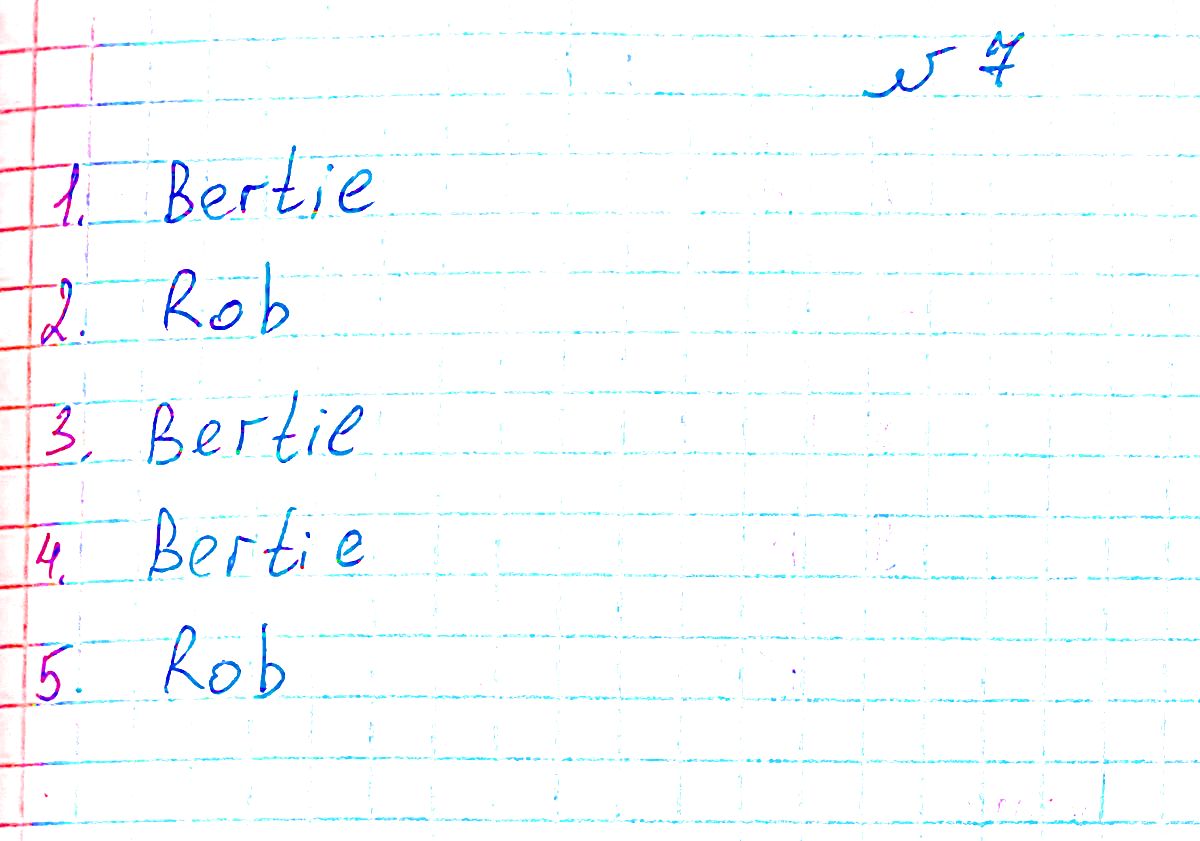 № 7
1. Bertie
2. Rob
3. Bertie
4. Bertie
5. Rob